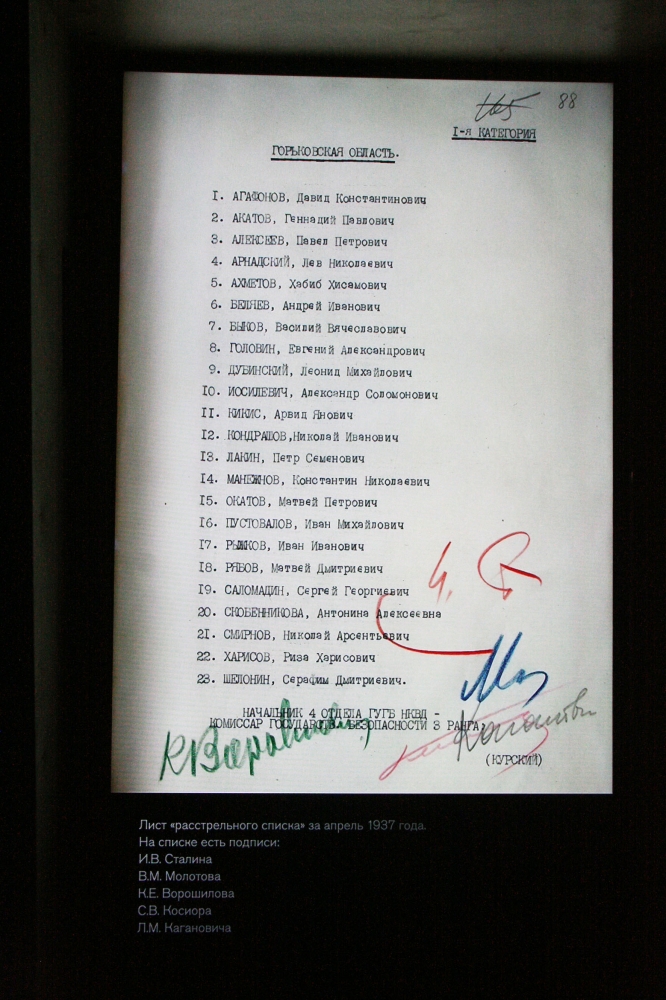 88
I-я КАТЕГОРИЯ
ГОРЬКОВСКАЯ ОБЛАСТЬ.
1. АГАФОНОВ, Давид Константинович
2. АКАТОВ, Геннадий Павлович
3. АЛЕКСЕЕВ, Павел Петрович
4. АРНАДСКИЙ, Лев Николаевич
5. АХМЕТОВ, Хабиб Хисамович
6. БЕЛЯЕВ, Андрей Иванович
7. БЫКОВ, Василий Вячеславович
8. ГОЛОВИН, Евгений Александрович
9. ДУБИНСКИЙ, Леонид Михайлович
10. ИОСИЛЕВИЧ, Александр Соломонович
11. КИКИС, Арвид Янович
12. КОНДРАШОВ,Николай Иванович
13. ЛАКИН, Петр Семенович
14. МАНЕЖНОВ, Константин Николаевич
15. ОКАТОВ, Матвей Петрович
16. ПУСТОВАЛОВ, Иван Михайлович
17. РЫЖКОВ, Иван Иванович
18. РЯБОВ, Матвей Дмитриевич
19. САЛОМАДИН, Сергей Георгиевич
20. СКОБЕННИКОВА, Антонина Алексеевна
21. СМИРНОВ, Николай Арсентьевич
22. ХАРИСОВ, Риза Харисович
23. ШЕЛОНИН, Серафим Дмитриевич.
НАЧАЛЬНИК 4 ОТДЕЛА ГУГБ НКВД -
КОМИССАР ГОСУДАРСТВ. БЕЗОПАСНОСТИ 3 РАНГА
(КУРСКИЙ)
Лист «расстрельного списка» за апрель 1937 года.
На списке есть подписи:
И.В. Сталина
В.М. Молотова
К.Е. Ворошилова
С.В. Косиора
Л.М. Кагановича